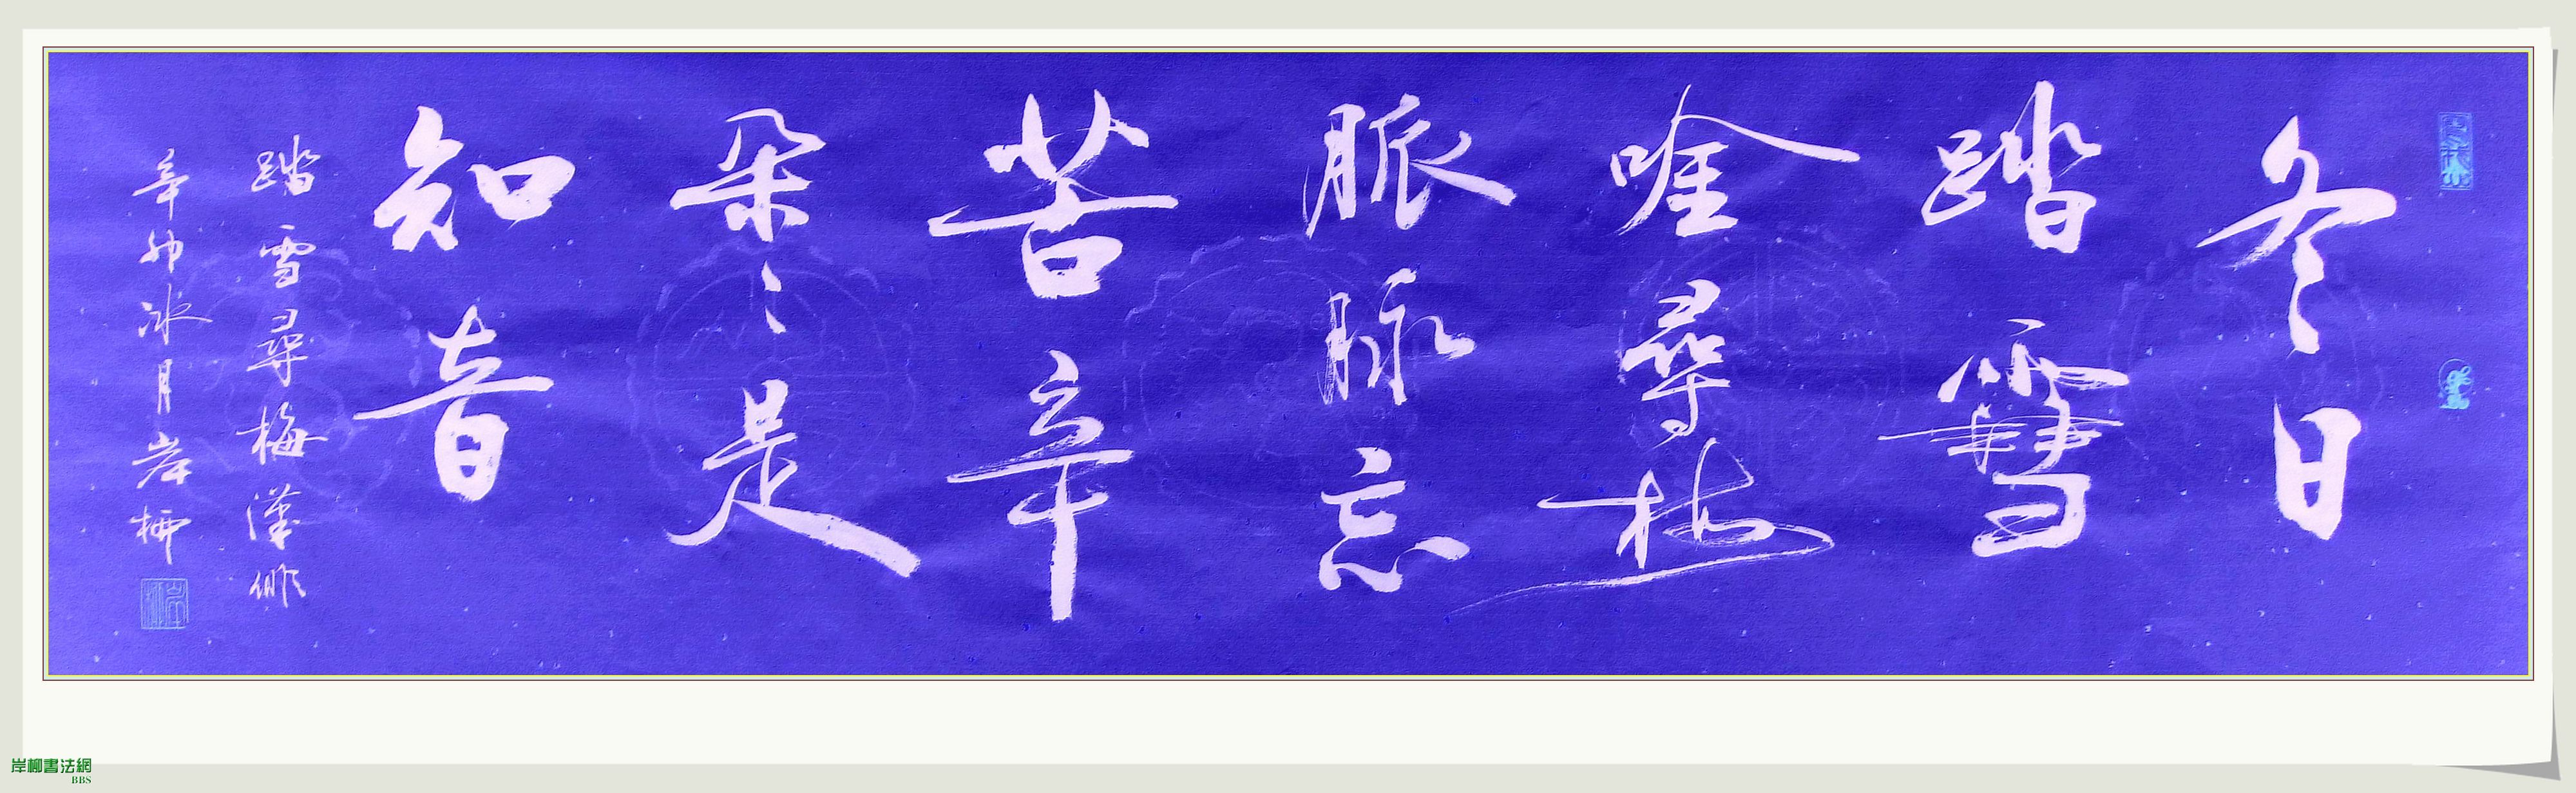 冬日
踏雪
唫尋梅
脈脉忘
苦辛
朵々是
知音
踏雪尋梅漢俳
辛卯冰月岸柳
岸柳書法網
BBS